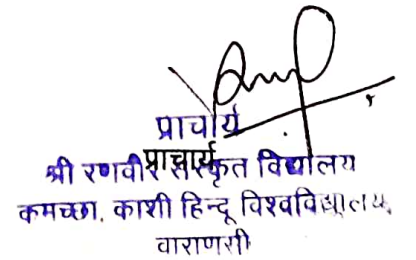 प्राचार्य
प्राचार्य
श्री रणवीर संस्कृत विद्यालय
कमच्छा, काशी हिन्दू विश्वविद्यालय,
वाराणसी